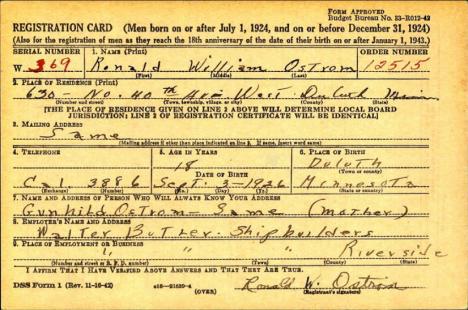 FORM APPROVED
Budget Bureau No. 33-R012-42
REGISTRATION CARD (Men born on or after July 1, 1924, and on or before December 31, 1924)
(Also for the registration of men as they reach the 18th anniversary of the date of their birth on or after January 1, 1943.)
SERIAL NUMBER 1. NAME (Print) ORDER NUMBER
W 369 Ronald William Ostrom 12515
(First) (Middle) (Last)
2. PLACE OF RESIDENCE (Print)
630 - No. 40th Ave West Duluth Minn
(Number and street) (Town, township, village, or city) (County) (State)
[THE PLACE OF RESIDENCE GIVEN ON LINE 2 ABOVE WILL DETERMINE LOCAL BOARD
JURISDICTION; LINE 2 OF REGISTRATION CERTIFICATE WILL BE IDENTICAL]
3. MAILING ADDRESS
Same
(Mailing address if other than place indicated on line 2. If same, insert word same)
4. TELEPHONE 5. AGE IN YEARS 6. PLACE OF BIRTH
18 Duluth
DATE OF BIRTH (Town or county)
Cal. 3886 Sept. 3 - 1926 Minnesota
(Exchange) (Number) (Mo.) (Day) (Yr.) (State or country)
7. NAME AND ADDRESS OF PERSON WHO WILL ALWAYS KNOW YOUR ADDRESS
Gunhild Ostrom - Same (Mother)
8. EMPLOYER'S NAME AND ADDRESS
Walter Butler Shipbuilders
9. PLACE OF EMPLOYMENT OR BUSINESS
" " Riverside
(Number and street or R. F. D. number) (Town) (County) (State)
I AFFIRM THAT I HAVE VERIFIED ABOVE ANSWERS AND THAT THEY ARE TRUE.
DSS Form 1 (Rev. 11-16-42) (OVER) Ronald W. Ostrom
(Registrant's signature)